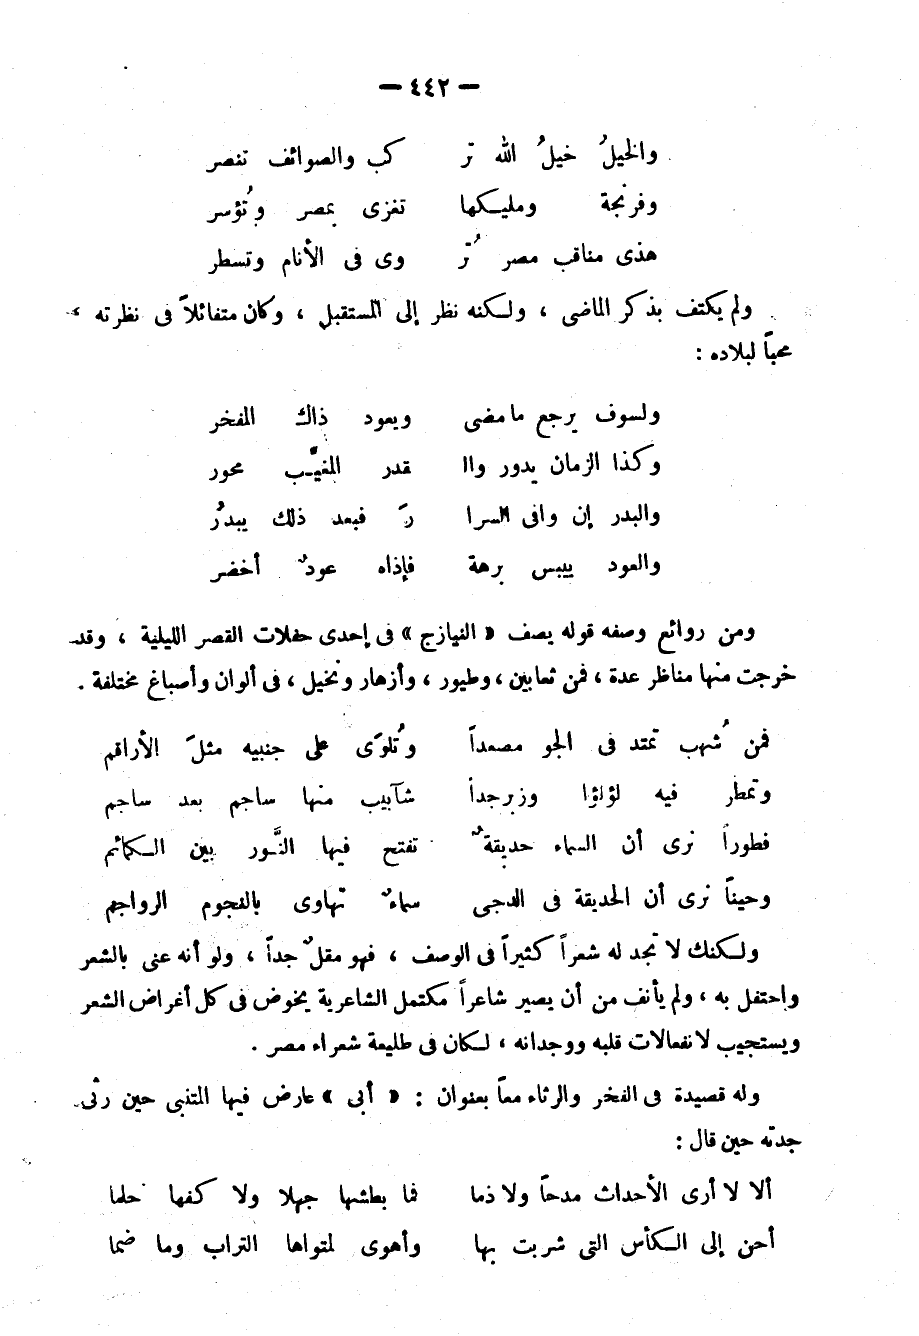 — ٤٤٢ —
والخيلُ خيلُ الله تر كب والصوائف تنصر
وفرنجة ومليكها تغزى بمصر وتُؤسر
هذى مناقب مصر تُر وى فى الأنام وتسطر
ولم يكتف بذكر الماضى ، ولكنه نظر إلى المستقبل ، وكان متفائلاً فى نظرته ،
محباً لبلاده :
ولسوف يرجع ما مضى ويعود ذاك المفخر
وكذا الزمان يدور والـ قدر المغيَّب محور
والبدر إن وافى السرا رَ فبعد ذلك يبدُر
والعود ييبس برهة فإذاه عودٌ أخضر
ومن روائع وصفه قوله يصف « النيازج » فى إحدى حفلات القصر الليلية ، وقد
خرجت منها مناظر عدة ، فمن ثعابين ، وطيور ، وأزهار ونخيل ، فى ألوان وأصباغ مختلفة .
فمن شُهب تمتد فى الجو مصعداً وتُلوَى على جنبيه مثلَ الأراقم
وتمطر فيه لؤلؤا وزبرجداً شآبيب منها ساجم بعد ساجم
فطوراً نرى أن السماء حديقةٌ تفتح فيها النَّور بين الكمائم
وحيناً نرى أن الحديقة فى الدجى سماءٌ تهاوى بالنجوم الرواجم
ولكنك لا تجد له شعراً كثيراً فى الوصف ، فهو مقلٌ جداً ، ولو أنه عنى بالشعر
واحتفل به ، ولم يأنف من أن يصير شاعراً مكتمل الشاعرية يخوض فى كل أغراض الشعر
ويستجيب لانفعالات قلبه ووجدانه ، لكان فى طليعة شعراء مصر .
وله قصيدة فى الفخر والرثاء معاً بعنوان : « أبى » عارض فيها المتنبى حين رثى
جدته حين قال :
ألا لا أرى الأحداث مدحاً ولا ذما فما بطشها جهلا ولا كفها حلما
أحن إلى الكأس التى شربت بها وأهوى لمثواها التراب وما ضما